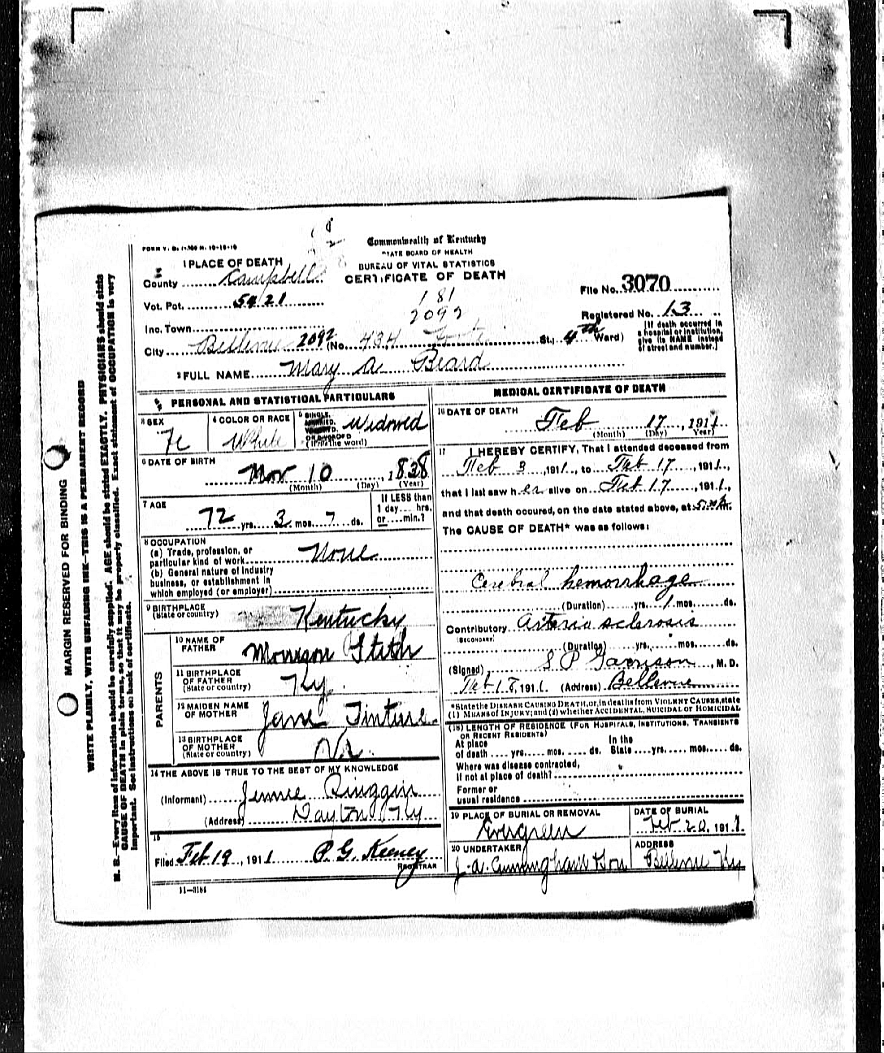 Commonwealth of Kentucky
STATE BOARD OF HEALTH
BUREAU OF VITAL STATISTICS
CERTIFICATE OF DEATH
1 PLACE OF DEATH
County Campbell
File No. 3070
Vot. Pct. 5421
181
2092
Registered No. 13
Inc. Town
[If death occurred in a hospital or institution, give its NAME instead of street and number.]
City Bellevue 2092 (No. 434 St.; 4th Ward)
2 FULL NAME Mary A Beard
PERSONAL AND STATISTICAL PARTICULARS
3 SEX Fe
4 COLOR OR RACE White
5 SINGLE, MARRIED, WIDOWED OR DIVORCED (Write the word) Widowed
6 DATE OF BIRTH
Nov 10, 1838
(Month) (Day) (Year)
7 AGE
72 yrs. 3 mos. 7 ds.
If LESS than 1 day... hrs. or... min.?
8 OCCUPATION
(a) Trade, profession, or particular kind of work None
(b) General nature of industry business, or establishment in which employed (or employer)
9 BIRTHPLACE
(State or country) Kentucky
PARENTS
10 NAME OF FATHER Stith
11 BIRTHPLACE OF FATHER (State or country) Ky.
12 MAIDEN NAME OF MOTHER Jane
13 BIRTHPLACE OF MOTHER (State or country) Va.
14 THE ABOVE IS TRUE TO THE BEST OF MY KNOWLEDGE
(Informant) Jennie
(Address) Dayton Ky
15
Filed Feb 19, 1911 P. G. Keeney
REGISTRAR
11-3184
MEDICAL CERTIFICATE OF DEATH
16 DATE OF DEATH
Feb 17, 1911
(Month) (Day) (Year)
17 I HEREBY CERTIFY, That I attended deceased from
Feb 3, 1911, to Feb 17, 1911,
that I last saw her alive on Feb 17, 1911,
and that death occured, on the date stated above, at
The CAUSE OF DEATH* was as follows:
Cerebral hemorrhage
(Duration) yrs. 1 mos. ds.
Contributory Arterio sclerosis
(SECONDARY)
(Duration) yrs. mos. ds.
(Signed) S P Garrison, M. D.
Feb 18, 1911. (Address) Bellevue
*State the DISEASE CAUSING DEATH, or, in deaths from VIOLENT CAUSES, state
(1) MEANS OF INJURY; and (2) whether ACCIDENTAL, SUICIDAL OR HOMICIDAL
(18) LENGTH OF RESIDENCE (FOR HOSPITALS, INSTITUTIONS, TRANSIENTS
OR RECENT RESIDENTS)
At place of death yrs. mos. ds. In the State yrs. mos. ds.
Where was disease contracted,
if not at place of death?
Former or
usual residence
19 PLACE OF BURIAL OR REMOVAL
Evergreen
DATE OF BURIAL
Feb 20, 1911
20 UNDERTAKER
J. A. Cunningham Son
ADDRESS
Bellevue Ky
MARGIN RESERVED FOR BINDING
WRITE PLAINLY, WITH UNFADING INK—THIS IS A PERMANENT RECORD
N. B.—Every item of information should be carefully supplied. AGE should be stated EXACTLY. PHYSICIANS should state
CAUSE OF DEATH in plain terms, so that it may be properly classified. Exact statement of OCCUPATION is very
important. See instructions on back of certificate.